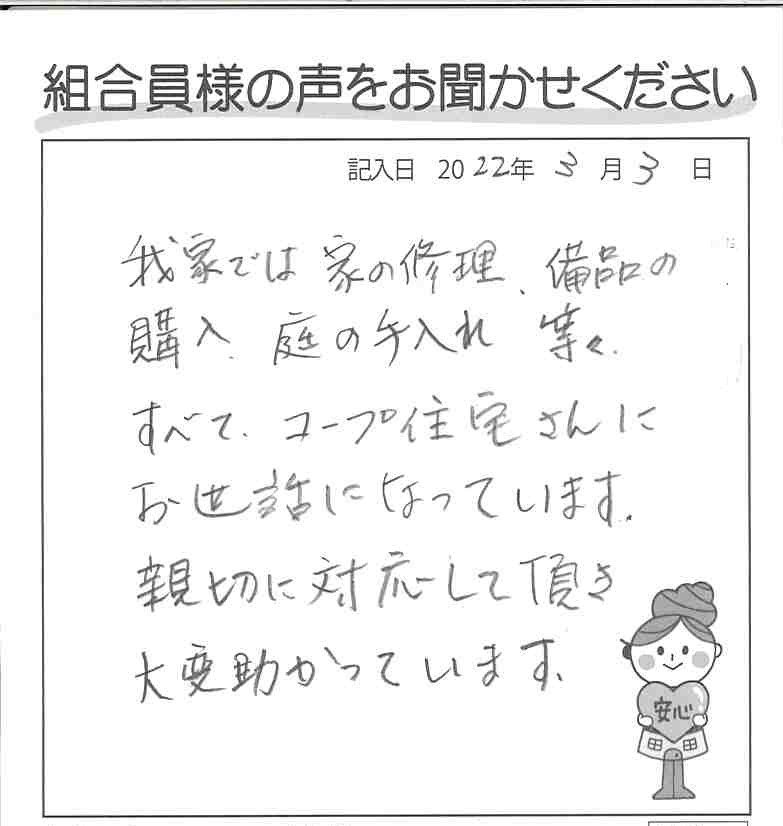 組合員様の声をお聞かせください
記入日 2022年 3月3日
我家では 家の修理、備品の
購入、庭の手入れ 等々、
すべて、コープ住宅さんに
お世話になっています。
親切に対応して頂き
大変助かっています。
安心